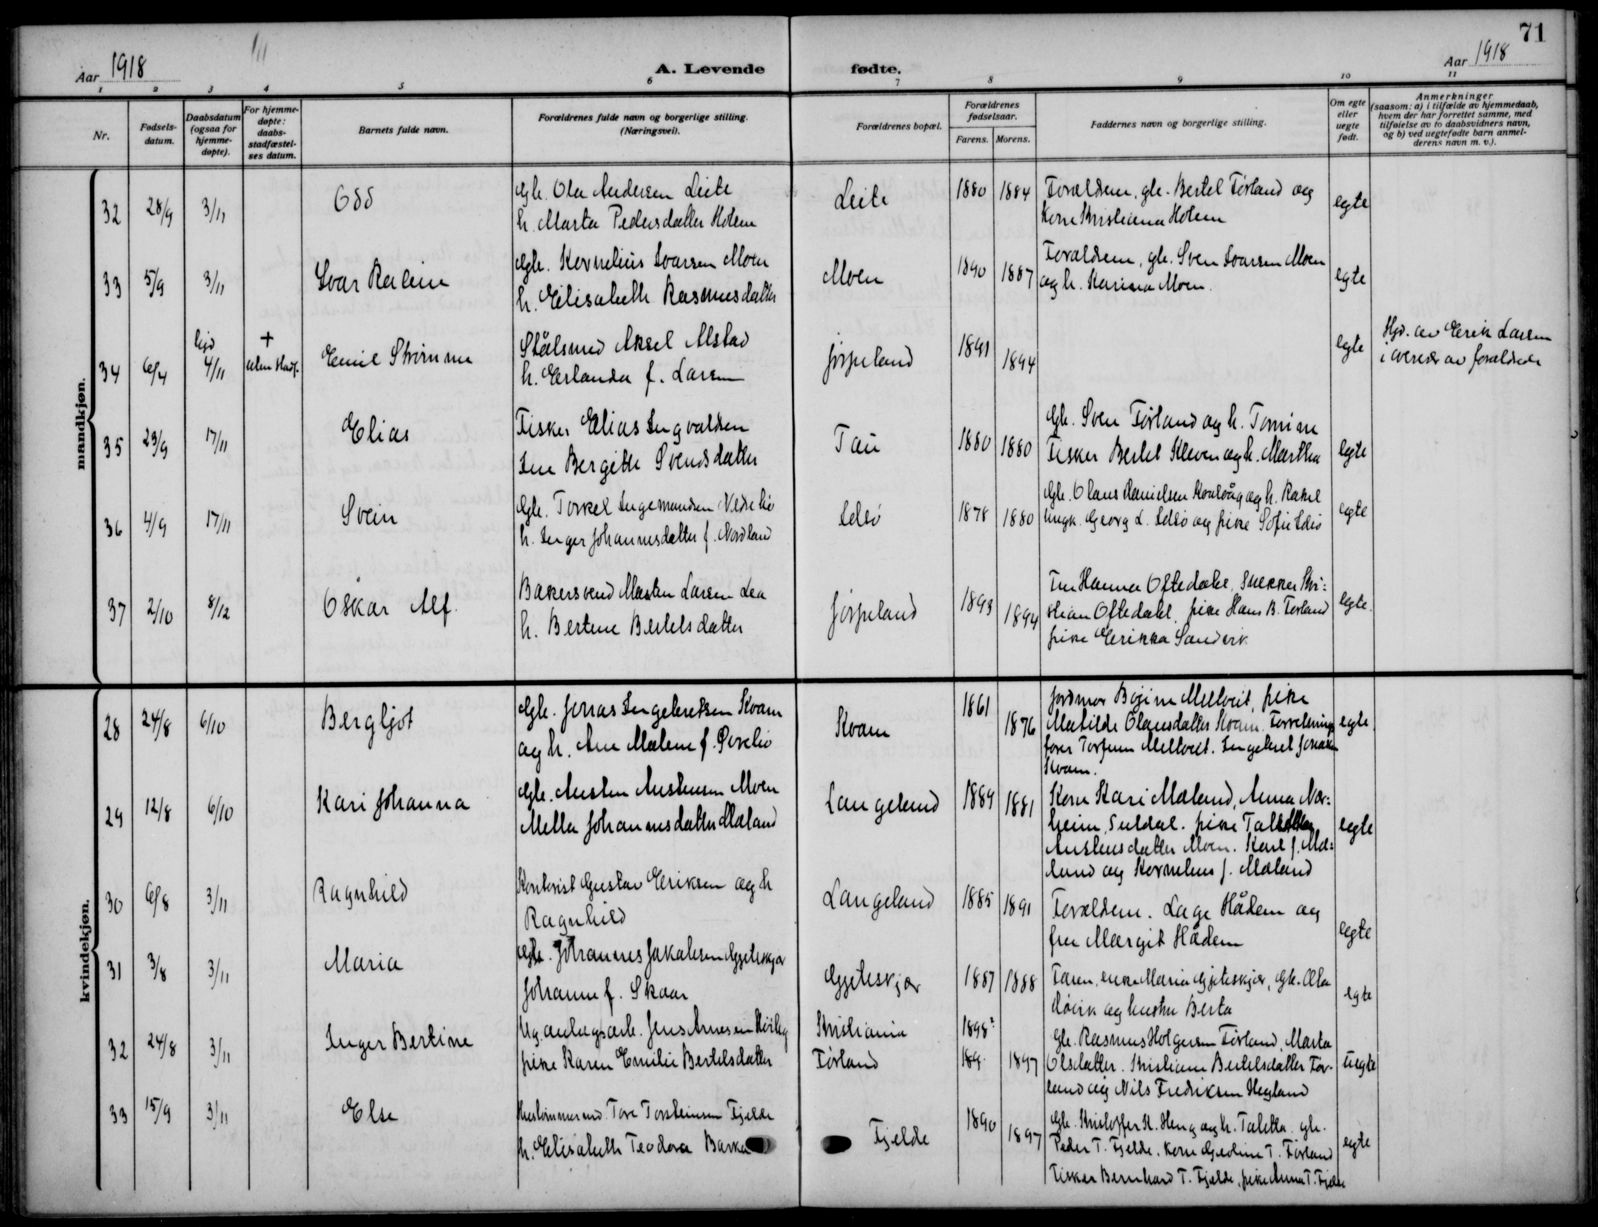 71
Aar 1918
A. Levende fødte.
Aar 1918
1 2 3 4 5 6 7 8 9 10 11
Nr.
Fødsels-
datum.
Daabsdatum
(ogsaa for
hjemme-
døpte).
For hjemme-
døpte:
daabs-
stadfæstel-
ses datum.
Barnets fulde navn.
Forældrenes fulde navn og borgerlige stilling.
(Næringsvei).
Forældrenes bopæl.
Forældrenes
fødselsaar.
Farens. Morens.
Faddernes navn og borgerlige stilling.
Om egte
eller
uegte
født.
Anmerkninger
(saasom: a) i tilfælde av hjemmedaab,
hvem der har forrettet samme, med
tilføielse av to daabsvidners navn,
og b) ved uegtefødte barn anmel-
derens navn m. v.).
mandkjøn.
32 28/9 3/11 Odd
Gbr. Ola Andersen Leite
h. Marta Pedersdatter Holem
Leite 1880 1884
Forældrene, gbr. Bertel Førland og
Kone Kristiana Holem
egte
33 5/9 3/11 Ivar
Gbr. Kornelius Ivarsen Moen
h. Elisabeth Rasmusdatter
Moen 1890 1887
Forældrene, gbr. Sven Ivarsen Moen
og h. Karina Moen.
egte
34 6/4 hjd 4/11 + uten stadf. Emil Strømme
Stålsmed Aksel Alstad
h. Erlanda f. Larsen
Jørpeland 1891 1894
egte
Hjd. av Erik Larsen
i overvær av forældrene
35 29/9 17/11 Elias
Fisker Elias Ingvaldsen
Ine Bergitte Svendsdatter
Tau 1880 1880
Gbr. Sven Førland og h. Tomine
Fisker Bertel Kleven og h. Martha
egte
36 4/9 17/11 Svein
Gbr. Torkel Ingemundsen
h. Inger Johannesdatter f. Nordland
Idsø 1878 1880
Gbr. Olaus Danielsen og h. Rakel
ungk. Georg L. Idsø og pike Sofie Idsø
egte
37 2/10 8/12 Oskar Alf.
Bakersvend Martin Larsen Lea
h. Bertine Bertelsdatter
Jørpeland 1893 1894
Fru Hanna Oftedahl, Snekker Kri-
stian Oftedahl, pike Hans B. Førland
pike Erikka Sandvik
egte.
kvindekjøn.
28 24/8 6/10 Bergljot
Gbr. Jonas Ingebretsen Kvam
og h. Ane Malene f.
Kvam 1861 1876
Jordmor Melkveit, pike
Matilde Olausdatter Kvam. Forretnings
fører Torfinn Melkveit. Ingebret Jonassen
Kvam.
egte
29 12/8 6/10 Kari Johanna
Gbr. Austen Austensen Moen
Mella Johannesdatter Mæland
Langeland 1889 1881
Kone Kari Mæland, Anna Nor-
heim, Suldal. pike
Austensdatter Moen. Karl J. Mæ-
land og Kornelius J. Mæland
egte
30 6/8 3/11 Ragnhild
Kontorist Gustav Eriksen og h
Ragnhild
Langeland 1885 1891
Forældrene. Lage Hådem og
fru Margit Hådem
egte
31 3/8 3/11 Maria
Gbr. Johannes Jakobsen Gjeteskjær
Johanne f. Skaar
Gjeteskjær 1887 1888
Faren, enke Maria Gjeteskjær, Gbr. Ola
og hustru Berta
egte
32 24/8 3/11 Inger Bertine
Ug. anlægsarb. Jens Arnesen
pike Karen Emilie Bertelsdatter
Kristiania
Førland
1898? 189. 1897
Gbr. Rasmus Holgersen Førland, Marta
Olsdatter. Kristiane Bertelsdatter Før-
land og Nils Fredriksen Hegland
uegte
33 15/9 3/11 Else
Tore Torsteinsen Fjelde
h. Elisabeth Teodora
Fjelde 1890 1897
Gbr. Kristoffer K. Heng og h. Taletta. gbr.
Peder T. Fjelde. Kone T. Førland
Fisker Bernhard T. Fjelde, pike Anna T. Fjelde
egte